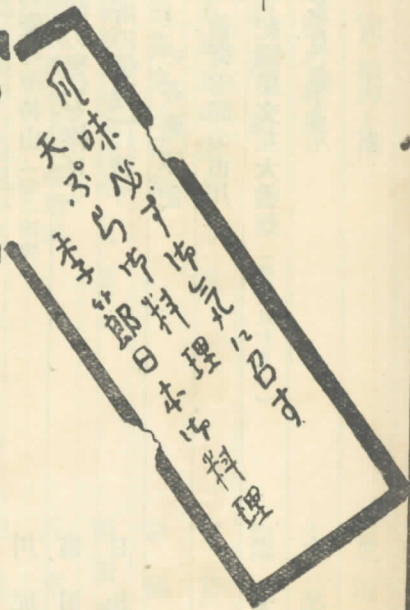 風味必ず御気に召す
天ぷら御料理
季節日本御料理